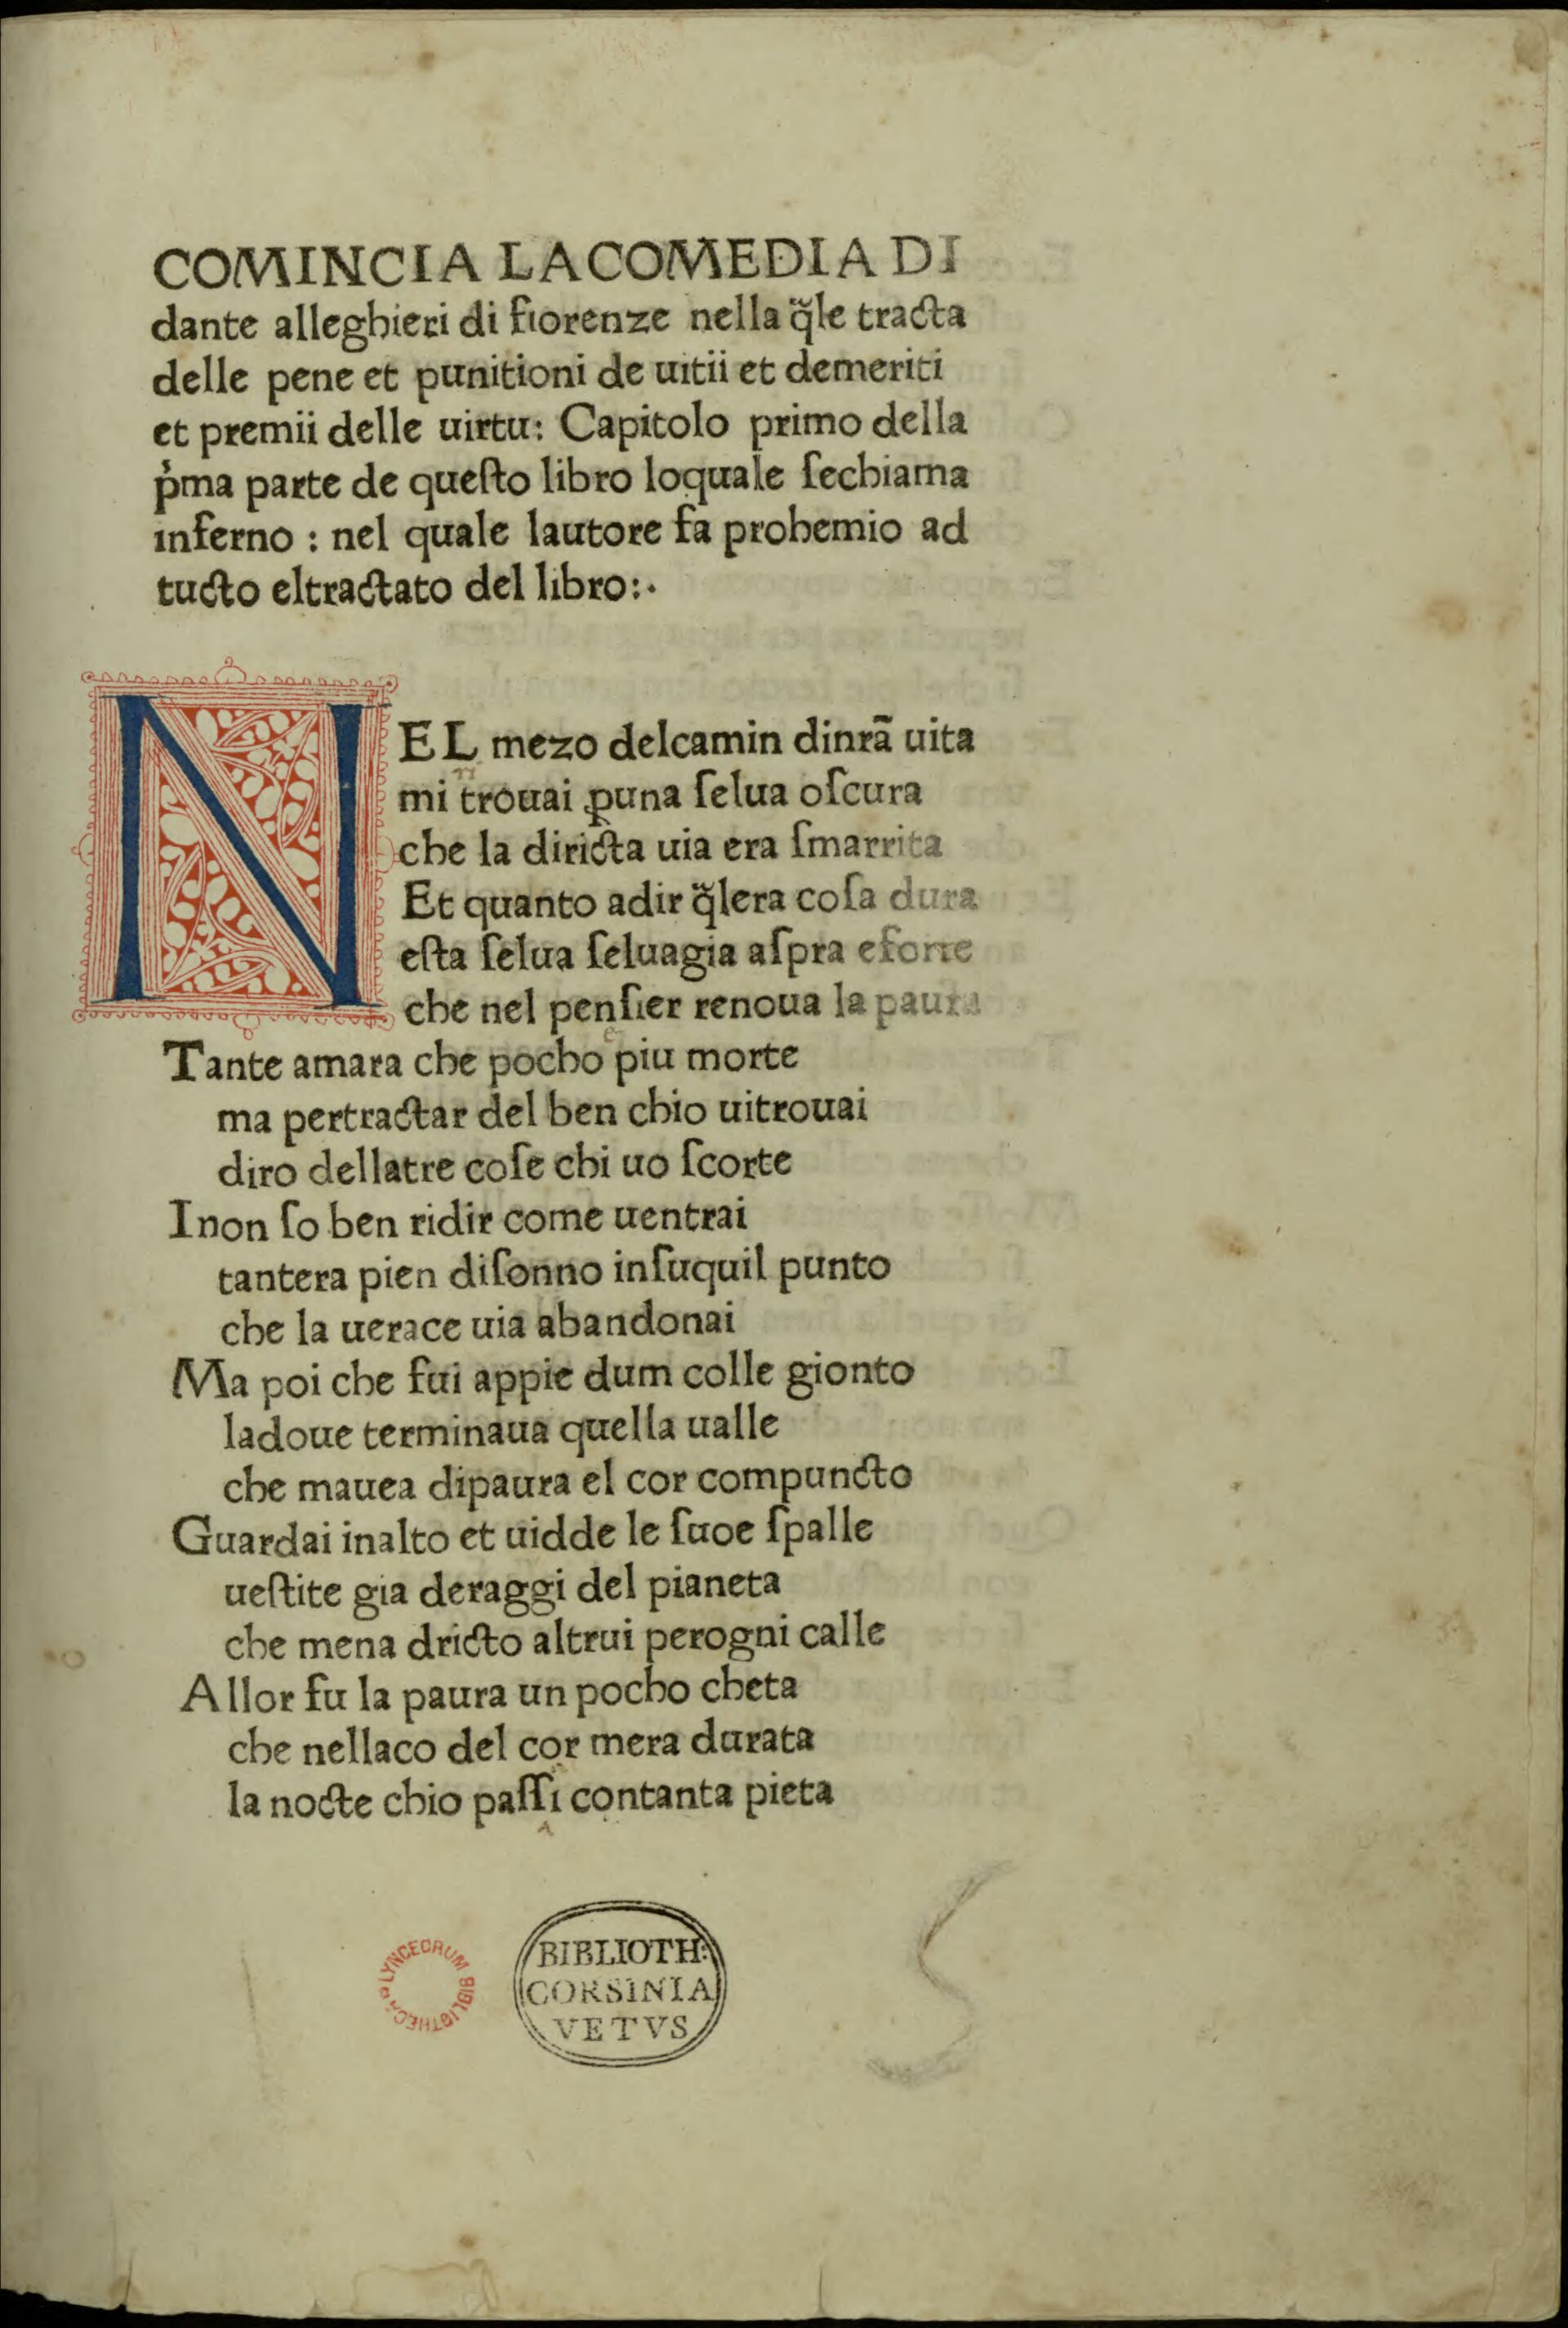 COMINCIA LACOMEDIA DI
dante alleghieri di fiorenze nella q̃le tracta
delle pene et punitioni de uitii et demeriti
et premii delle uirtu: Capitolo primo della
p̓ma parte de queſto libro loquale ſechiama
inferno : nel quale lautore fa probemio ad
tucto eltractato del libro:·
NEL mezo delcamin dinrã uita
mi trouai ꝑuna ſelua oſcura
che la diricta uia era ſmarrita
Et quanto adir q̃lera coſa dura
eſta ſelua ſeluagia aſpra eforte
che nel penſier renoua la paura
Tante amara che pocho piu morte
ma pertractar del ben chio uitrouai
diro dellatre coſe chi uo ſcorte
Inon ſo ben ridir come uentrai
tantera pien diſonno inſuquil punto
che la uerace uia abandonai
Ma poi che fui appie dum colle gionto
ladoue terminaua quella ualle
che mauea dipaura el cor compuncto
Guardai inalto et uidde le ſuoe ſpalle
ueſtite gia deraggi del pianeta
che mena dricto altrui perogni calle
Allor fu la paura un pocho cheta
che nellaco del cor mera durata
la nocte chio paſſi contanta pieta
LYNCEORUM BIBLIOTHECA
BIBLIOTH:
CORSINIA
VETVS